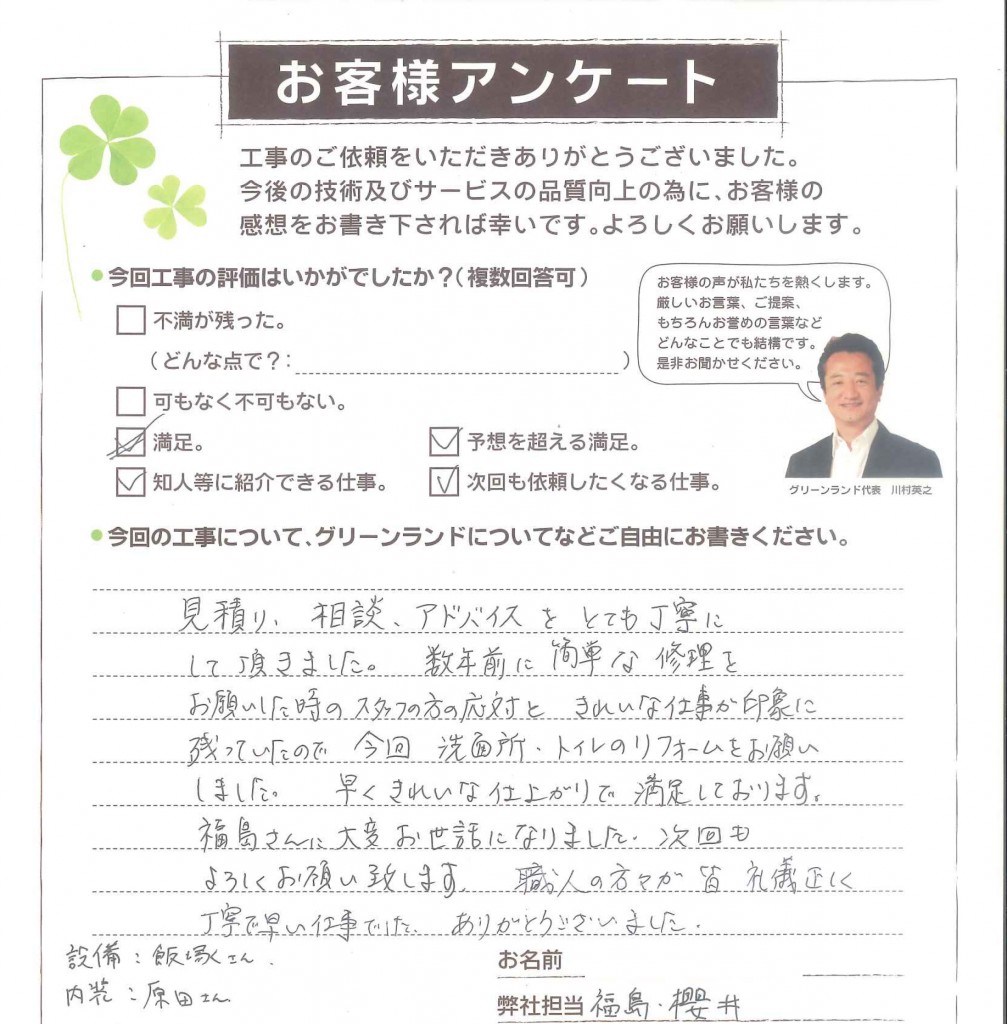 お客様アンケート
工事のご依頼をいただきありがとうございました。
今後の技術及びサービスの品質向上の為に、お客様の
感想をお書き下されば幸いです。よろしくお願いします。
今回工事の評価はいかがでしたか？（複数回答可）
不満が残った。
（どんな点で？：　）
可もなく不可もない。
満足。
予想を超える満足。
知人等に紹介できる仕事。
次回も依頼したくなる仕事。
お客様の声が私たちを熱くします。
厳しいお言葉、ご提案、
もちろんお誉めの言葉など
どんなことでも結構です。
是非お聞かせください。
グリーンランド代表　川村英之
今回の工事について、グリーンランドについてなどご自由にお書きください。
見積り、相談、アドバイスをとても丁寧に
して頂きました。数年前に簡単な修理を
お願いした時のスタッフの方の応対ときれいな仕事が印象に
残っていたので今回洗面所・トイレのリフォームをお願い
しました。早くきれいな仕上がりで満足しております。
福島さんに大変お世話になりました。次回も
よろしくお願い致します。職人の方々が皆礼儀正しく
丁寧で早い仕事でした。ありがとうございました。
設備：飯塚さん.
内装：原田さん
お名前
弊社担当 福島・櫻井